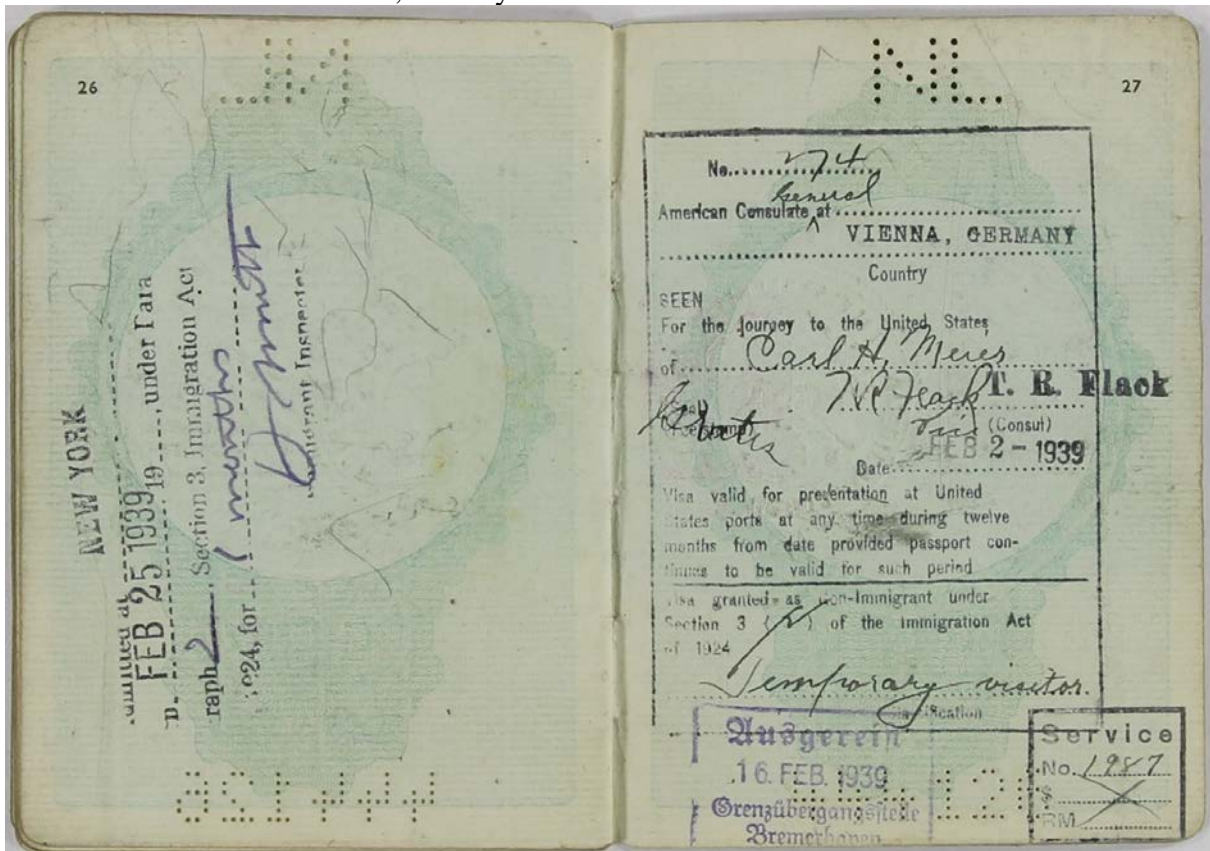 26
NEW YORK
FEB 25 1939 19 , under Para
raph 2 , Section 3, Immigration Act
1924, for
Immigrant Inspector
NL
27
No. 274
General
American Consulate at
VIENNA, GERMANY
Country
SEEN
For the Journey to the United States
of Carl H. Meier
T. R. Flack
(Consul)
Date FEB 2 - 1939
Visa valid for presentation at United
States ports at any time during twelve
months from date provided passport con-
tinues to be valid for such period
Visa granted as Non-Immigrant under
Section 3 (2) of the Immigration Act
of 1924
Temporary visitor.
Classification
Ausgereist
16. FEB. 1939
Grenzübergangsstelle
Bremerhaven
Service
No. 1987
RM